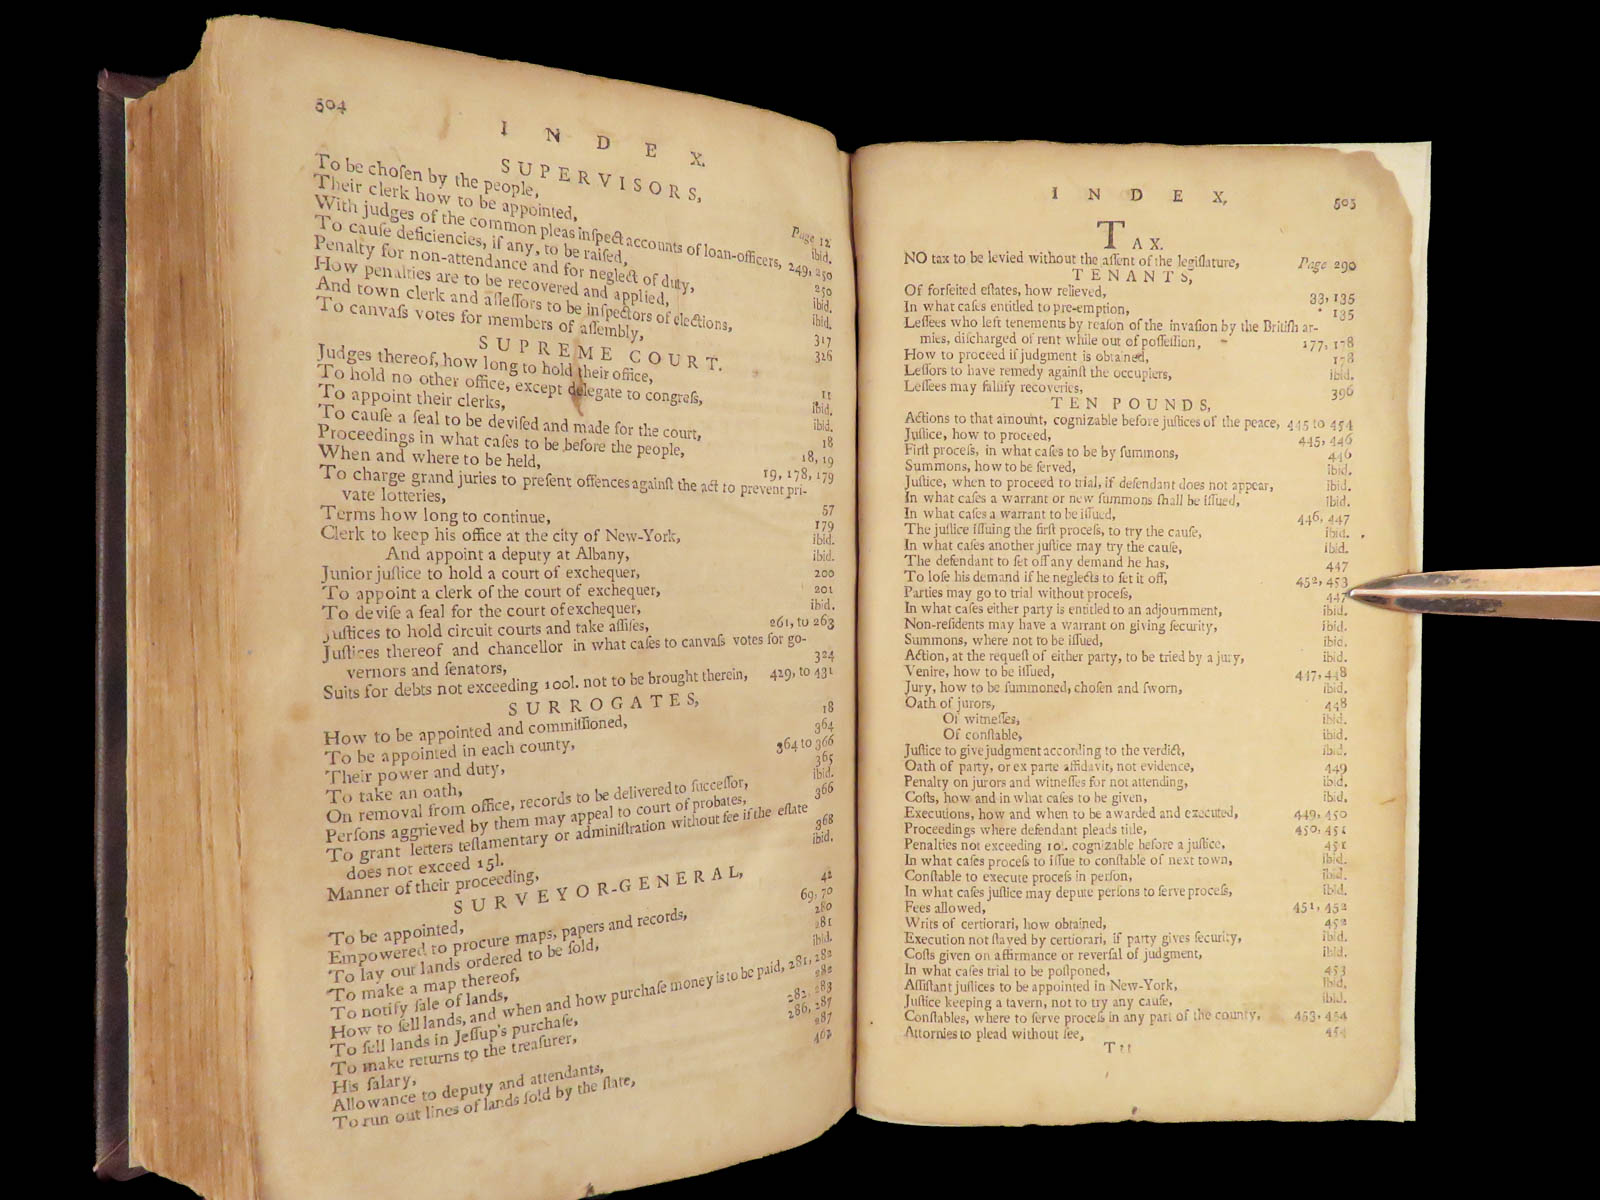 504
I N D E X.
S U P E R V I S O R S,
To be choſen by the people, Page 12
Their clerk how to be appointed, ibid.
With judges of the common pleas inſpect accounts of loan-officers, 249, 250
To cauſe deficiencies, if any, to be raiſed, 250
Penalty for non-attendance and for neglect of duty, ibid.
How penalties are to be recovered and applied, ibid.
And town clerk and aſſeſſors to be inſpectors of elections, 317
To canvaſs votes for members of aſſembly, 326
S U P R E M E C O U R T.
Judges thereof, how long to hold their office, 11
To hold no other office, except delegate to congreſs, ibid.
To appoint their clerks, ibid.
To cauſe a ſeal to be deviſed and made for the court, 18
Proceedings in what caſes to be before the people, 18, 19
When and where to be held, 19, 178, 179
To charge grand juries to preſent offences againſt the act to prevent pri-
vate lotteries, 57
Terms how long to continue, 179
Clerk to keep his office at the city of New-York, ibid.
And appoint a deputy at Albany, ibid.
Junior juſtice to hold a court of exchequer, 200
To appoint a clerk of the court of exchequer, 201
To deviſe a ſeal for the court of exchequer, ibid.
Juſtices to hold circuit courts and take aſſiſes, 261, to 263
Juſtices thereof and chancellor in what caſes to canvaſs votes for go-
vernors and ſenators, 324
Suits for debts not exceeding 100l. not to be brought therein, 429, to 431
S U R R O G A T E S,
How to be appointed and commiſſioned, 18
To be appointed in each county, 364
Their power and duty, 364 to 366
To take an oath, 365
On removal from office, records to be delivered to ſucceſſor, ibid.
Perſons aggrieved by them may appeal to court of probates, 366
To grant letters teſtamentary or adminiſtration without fee if the eſtate
does not exceed 15l. 368
Manner of their proceeding, ibid.
S U R V E Y O R - G E N E R A L,
To be appointed, 42
Empowered to procure maps, papers and records, 69, 70
To lay out lands ordered to be ſold, 280
To make a map thereof, 281
To notify ſale of lands, ibid.
How to ſell lands, and when and how purchaſe money is to be paid, 281, 282
To ſell lands in Jeſſup's purchaſe, 282
To make returns to the treaſurer, 282, 283
His ſalary, 286, 287
Allowance to deputy and attendants, 287
To run out lines of lands ſold by the ſtate,
I N D E X, 505
T A X.
NO tax to be levied without the aſſent of the legiſlature, Page 290
T E N A N T S,
Of forfeited eſtates, how relieved, 33, 135
In what caſes entitled to pre-emption, 135
Leſſees who left tenements by reaſon of the invaſion by the Britiſh ar-
mies, diſcharged of rent while out of poſſeſſion, 177, 178
How to proceed if judgment is obtained, 178
Leſſors to have remedy againſt the occupiers, ibid.
Leſſees may falſify recoveries, 396
T E N P O U N D S,
Actions to that amount, cognizable before juſtices of the peace, 445 to 454
Juſtice, how to proceed, 445, 446
Firſt proceſs, in what caſes to be by ſummons, 446
Summons, how to be ſerved, ibid.
Juſtice, when to proceed to trial, if defendant does not appear, ibid.
In what caſes a warrant or new ſummons ſhall be iſſued, ibid.
In what caſes a warrant to be iſſued, 446, 447
The juſtice iſſuing the firſt proceſs, to try the cauſe, ibid.
In what caſes another juſtice may try the cauſe, ibid.
The defendant to ſet off any demand he has, 447
To loſe his demand if he neglects to ſet it off, 452, 453
Parties may go to trial without proceſs, 447
In what caſes either party is entitled to an adjournment, ibid.
Non-reſidents may have a warrant on giving ſecurity, ibid.
Summons, where not to be iſſued, ibid.
Action, at the requeſt of either party, to be tried by a jury, ibid.
Venire, how to be iſſued, 447, 448
Jury, how to be ſummoned, choſen and ſworn, ibid.
Oath of jurors, 448
Of witneſſes, ibid.
Of conſtable, ibid.
Juſtice to give judgment according to the verdict, ibid.
Oath of party, or ex parte affidavit, not evidence, 449
Penalty on jurors and witneſſes for not attending, ibid.
Coſts, how and in what caſes to be given, ibid.
Executions, how and when to be awarded and executed, 449, 450
Proceedings where defendant pleads title, 450, 451
Penalties not exceeding 10l. cognizable before a juſtice, 451
In what caſes proceſs to iſſue to conſtable of next town, ibid.
Conſtable to execute proceſs in perſon, ibid.
In what caſes juſtice may depute perſons to ſerve proceſs, ibid.
Fees allowed, 451, 452
Writs of certiorari, how obtained, 452
Execution not ſtayed by certiorari, if party gives ſecurity, ibid.
Coſts given on affirmance or reverſal of judgment, ibid.
In what caſes trial to be poſtponed, 453
Aſſiſtant juſtices to be appointed in New-York, ibid.
Juſtice keeping a tavern, not to try any cauſe, ibid.
Conſtables, where to ſerve proceſs in any part of the county, 453, 454
Attornies to plead without fee, 454